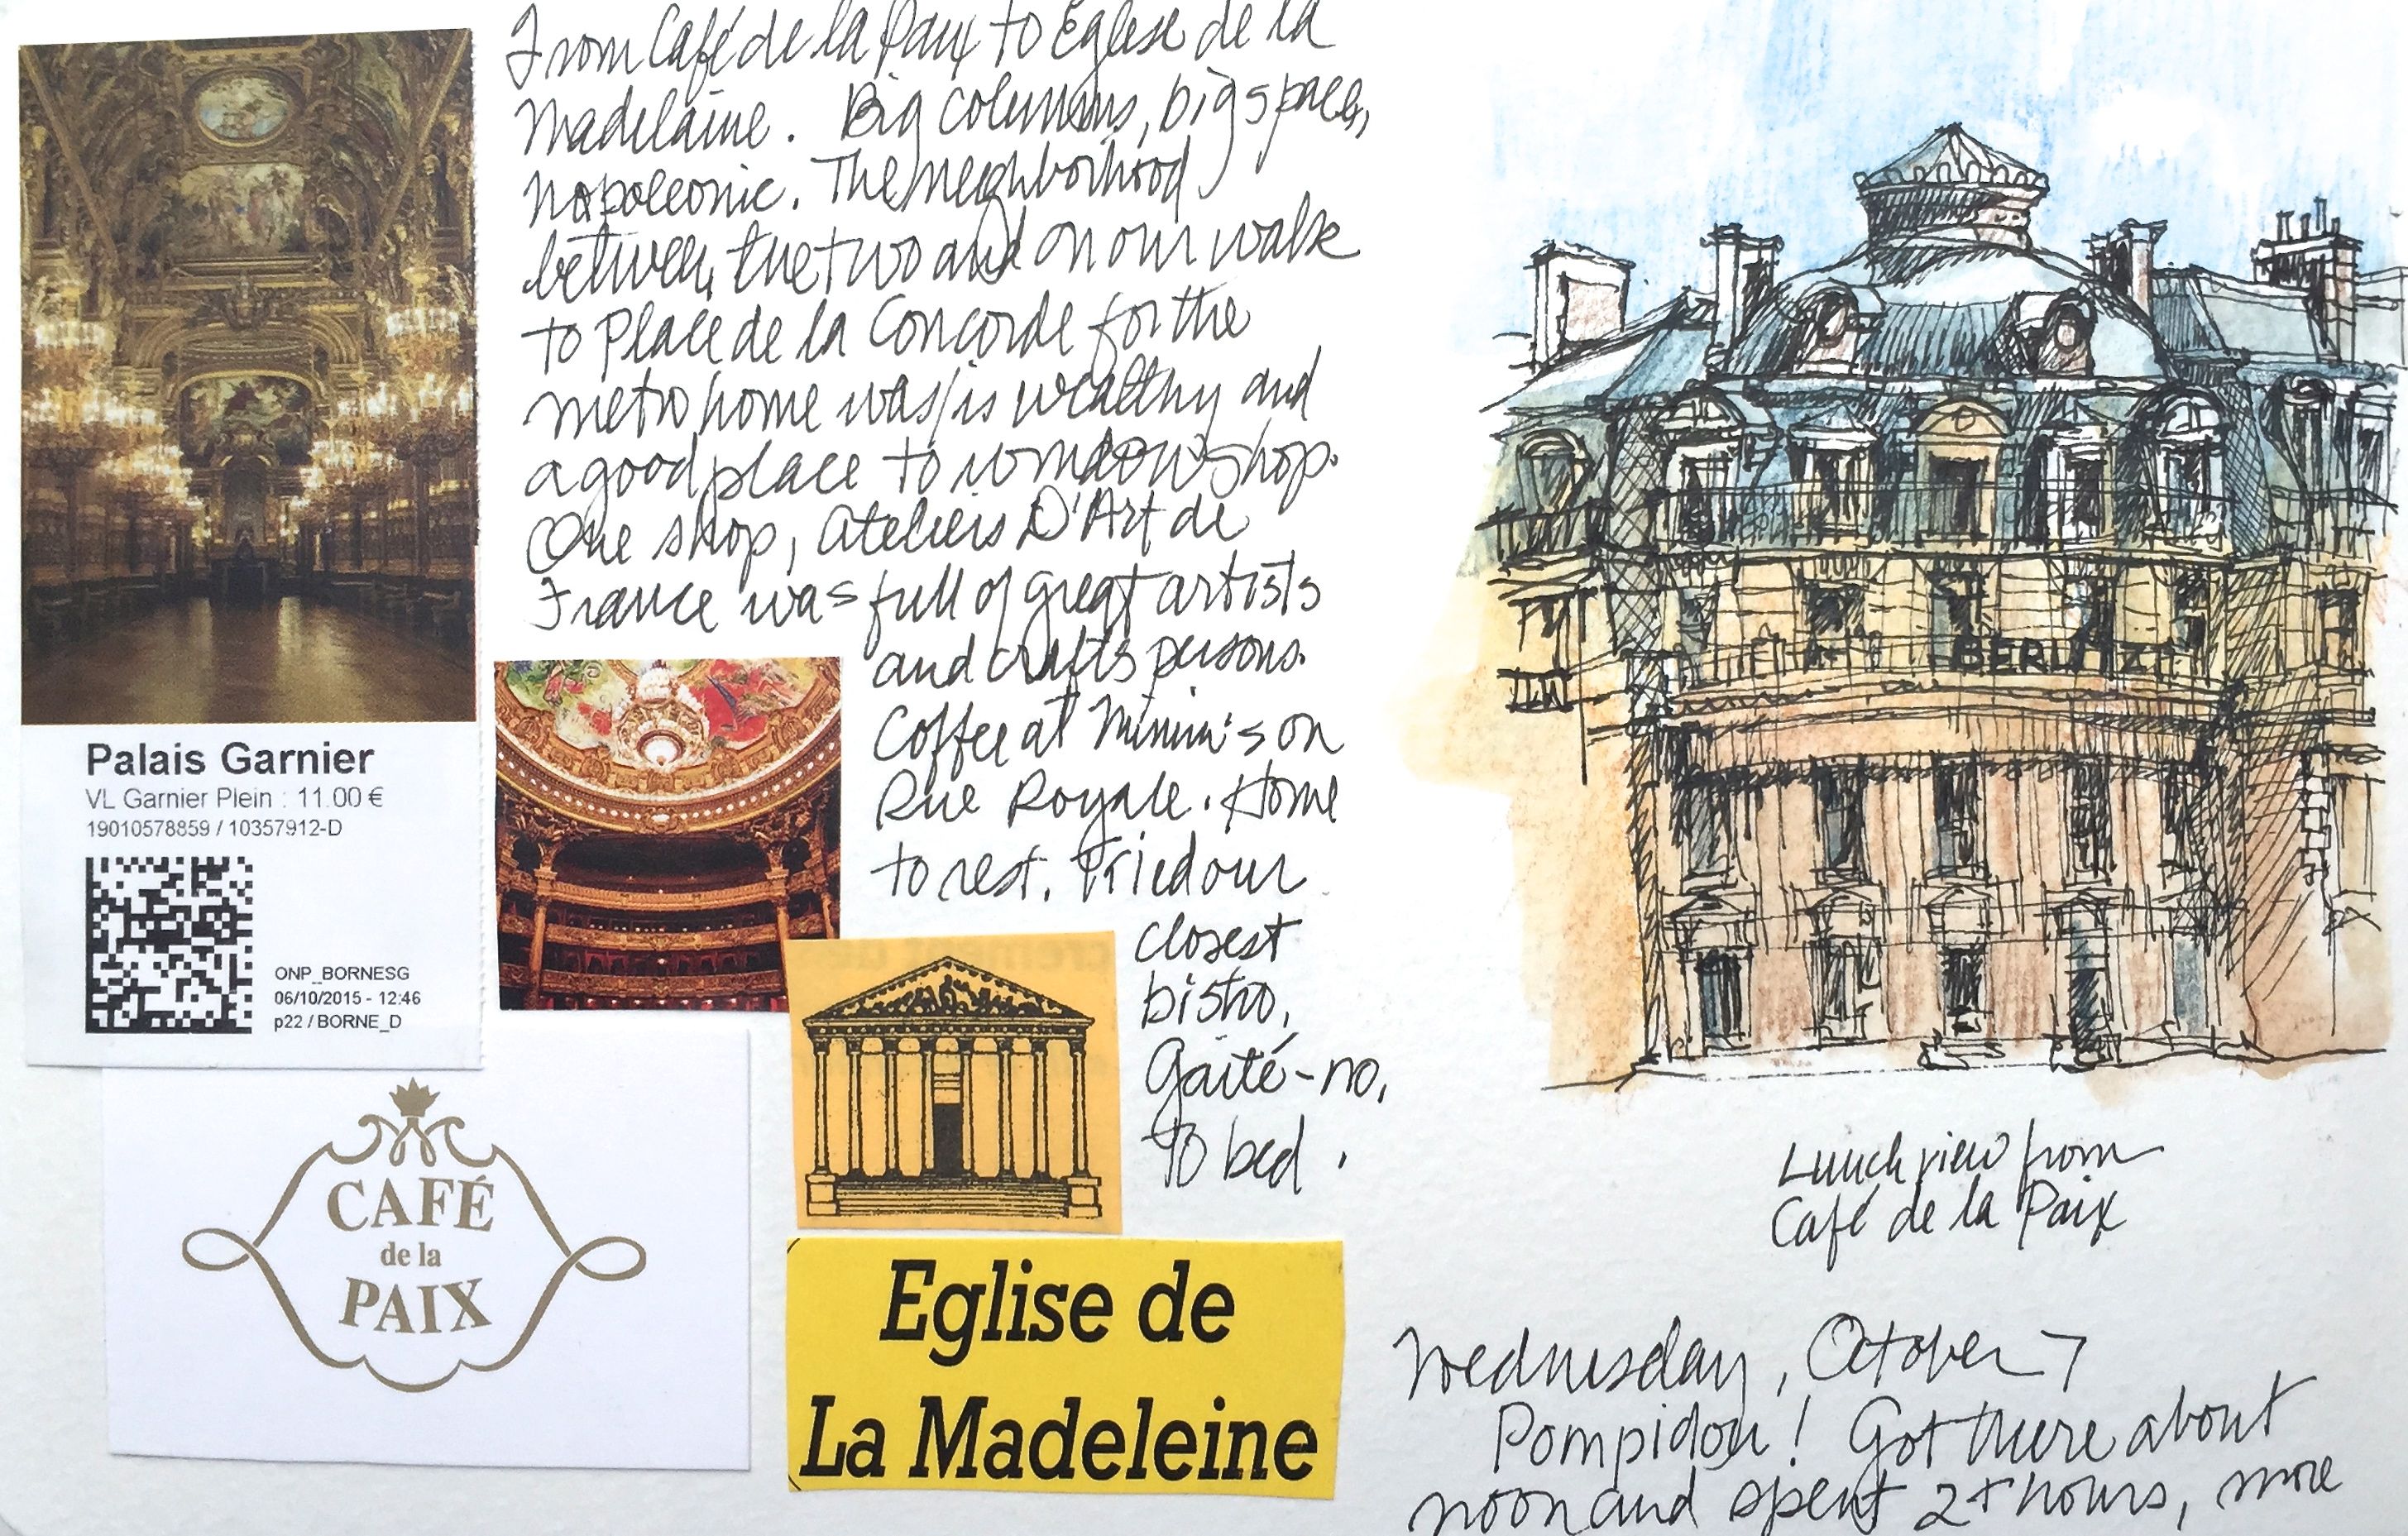 From Café de la Paix to Eglise de la
Madelaine. Big columns, big spaces,
Napoleonic. The neighborhood
between the two and on our walk
to Place de la Concorde for the
metro home was/is wealthy and
a good place to window shop.
One shop, Ateliers D'Art de
France was full of great artists
and crafts persons.
Coffee at Mimi's on
Rue Royale. Home
to rest. Tried our
closest
bistro,
Gaité-no,
to bed.
Palais Garnier
VL Garnier Plein : 11.00 €
19010578859 / 10357912-D
ONP_BORNESG
06/10/2015 - 12:46
p22 / BORNE_D
CAFÉ
de la
PAIX
Eglise de
La Madeleine
BERLITZ
Lunch view from
Café de la Paix
Wednesday, October 7
Pompidou! Got there about
noon and spent 2+ hours, more